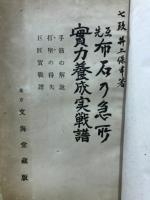 七段 井上保申著
先 布石の急所
互
實力養成実戦譜
手筋の解説
打碁の得失
巨匠實戰譜
東京 文海堂蔵版